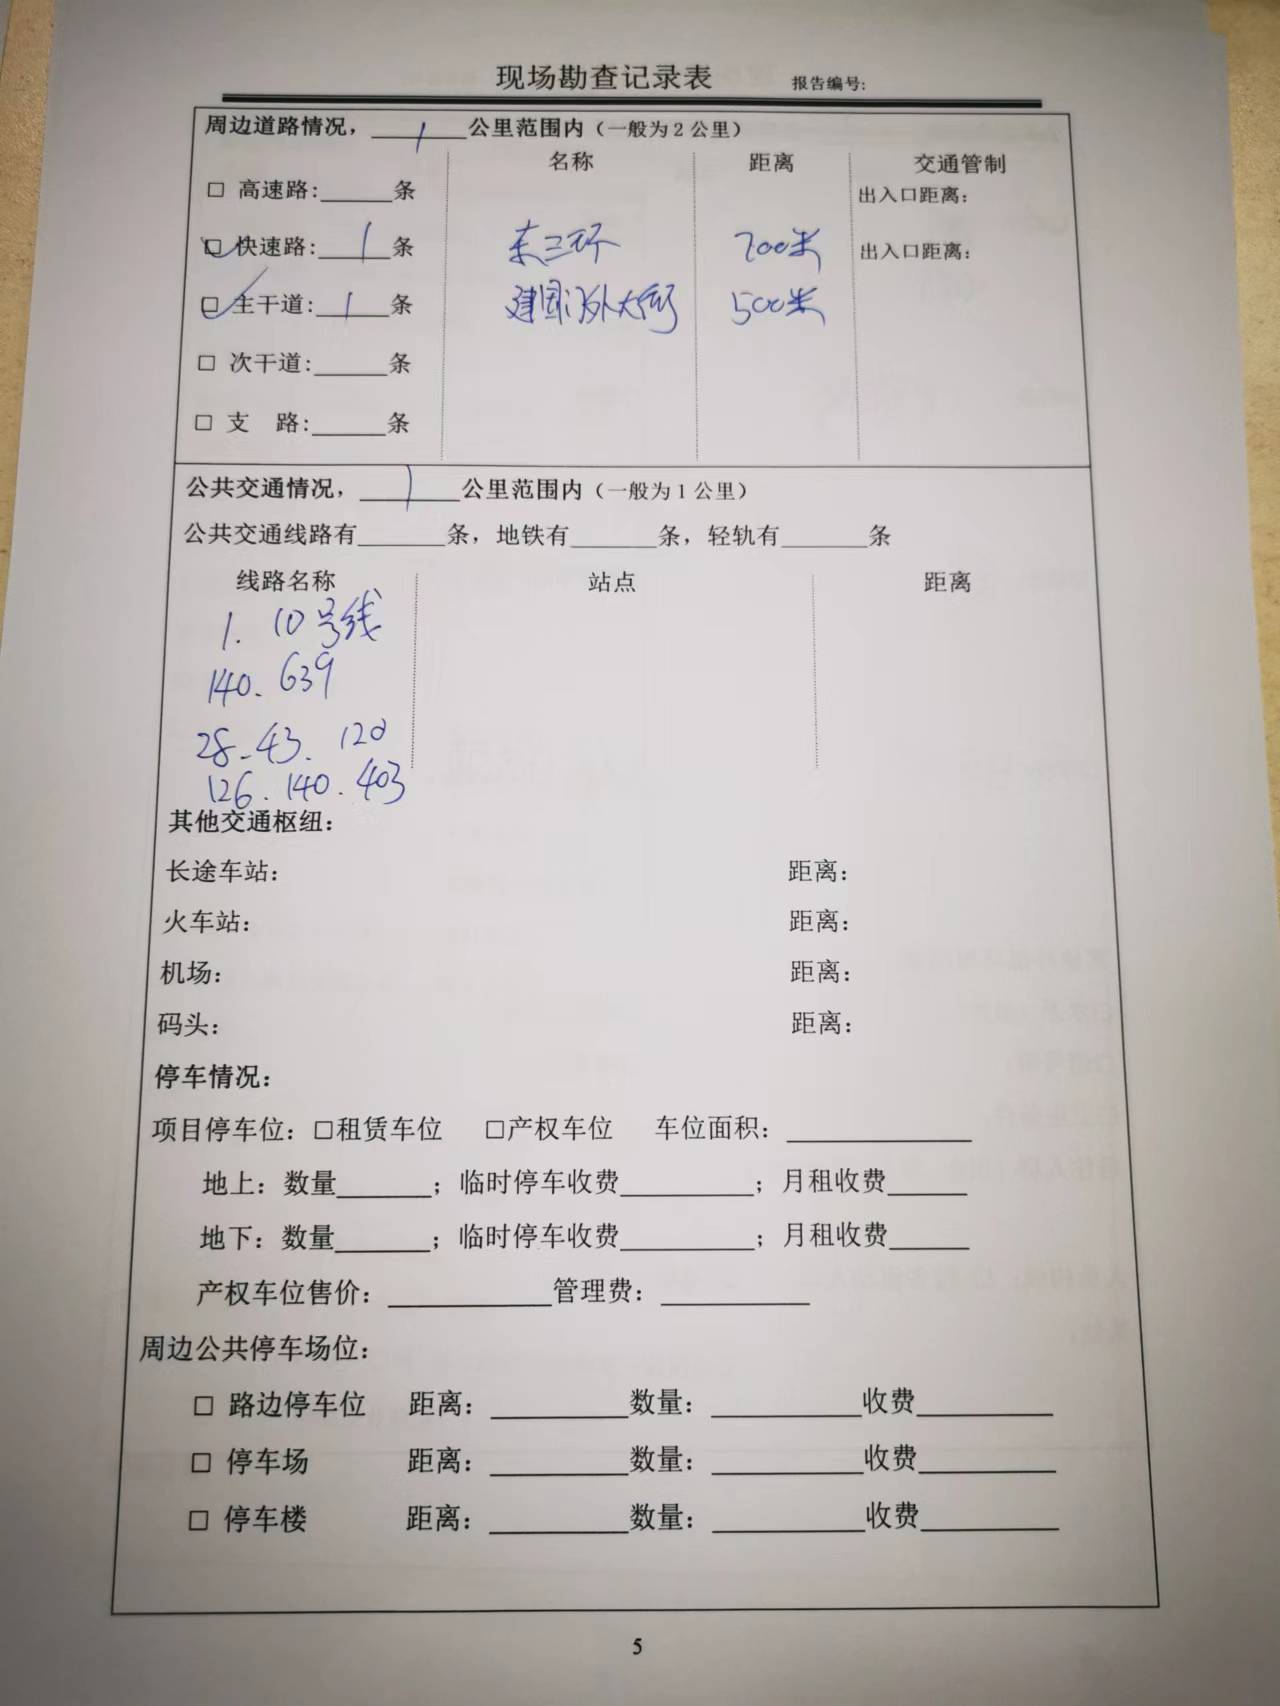 现场勘查记录表 报告编号:
周边道路情况，1公里范围内（一般为2公里）
名称 距离 交通管制
□ 高速路:______条 出入口距离：
☑ 快速路:1条 东三环 700米 出入口距离：
☑ 主干道:1条 建国门外大街 500米
□ 次干道:______条
□ 支 路:______条
公共交通情况，1公里范围内（一般为1公里）
公共交通线路有______条，地铁有______条，轻轨有______条
线路名称 站点 距离
1. 10号线
140. 639
28. 43. 120
126. 140. 403
其他交通枢纽：
长途车站： 距离：
火车站： 距离：
机场： 距离：
码头： 距离：
停车情况：
项目停车位：□租赁车位 □产权车位 车位面积：______
地上：数量______；临时停车收费______；月租收费______
地下：数量______；临时停车收费______；月租收费______
产权车位售价：______管理费：______
周边公共停车场位：
□ 路边停车位 距离：______数量：______收费______
□ 停车场 距离：______数量：______收费______
□ 停车楼 距离：______数量：______收费______
5